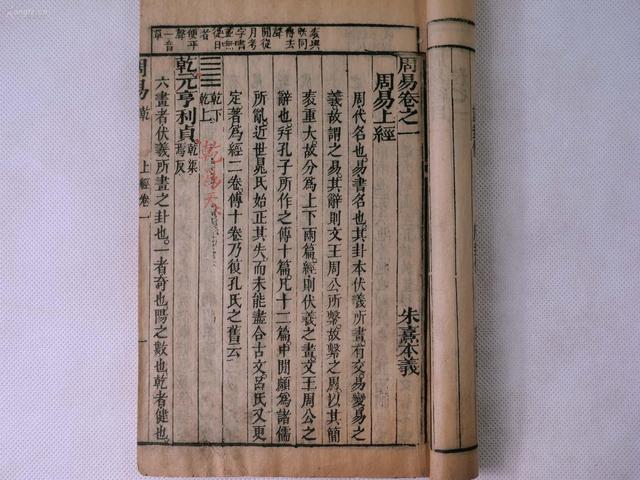 袠與
帙同
傳去
聲
閒從
月考
字書
並無
從日
者
便平
聲
一音
單
周易卷之一
朱熹本義
周易上經
周代名也。易書名也。其卦本伏羲所畫。有交易變易之
義。故謂之易。其辭則文王周公所繫。故繫之周。以其簡
袠重大。故分爲上下兩篇。經則伏羲之畫。文王周公之
辭也。幷孔子所作之傳十篇。凡十二篇。中閒頗爲諸儒
所亂。近世晁氏始正其失。而未能盡合古文。呂氏又更
定著爲經二卷。傳十卷。乃復孔氏之舊云。
乾下
乾上
乾爲天
乾元亨利貞。乾渠焉反
六畫者伏羲所畫之卦也。一者奇也。陽之數也。乾者健也。
周易 乾 上經卷一 一